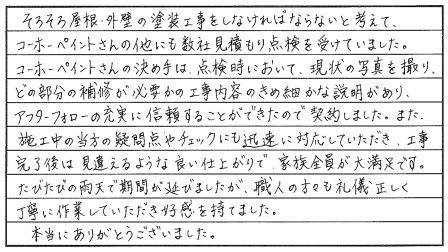 そろそろ屋根・外壁の塗装工事をしなければならないと考えて、
コーホーペイントさんの他にも数社見積もり点検を受けていました。
コーホーペイントさんの決め手は、点検時において、現状の写真を撮り、
どの部分の補修が必要かの工事内容のきめ細かな説明があり、
アフターフォローの充実に信頼することができたので契約しました。また、
施工中の当方の疑問点やチェックにも迅速に対応していただき、工事
完了後は見違えるような良い仕上がりで、家族全員が大満足です。
たびたびの雨天で期間が延びましたが、職人の方々も礼儀正しく
丁寧に作業していただき好感を持てました。
本当にありがとうございました。